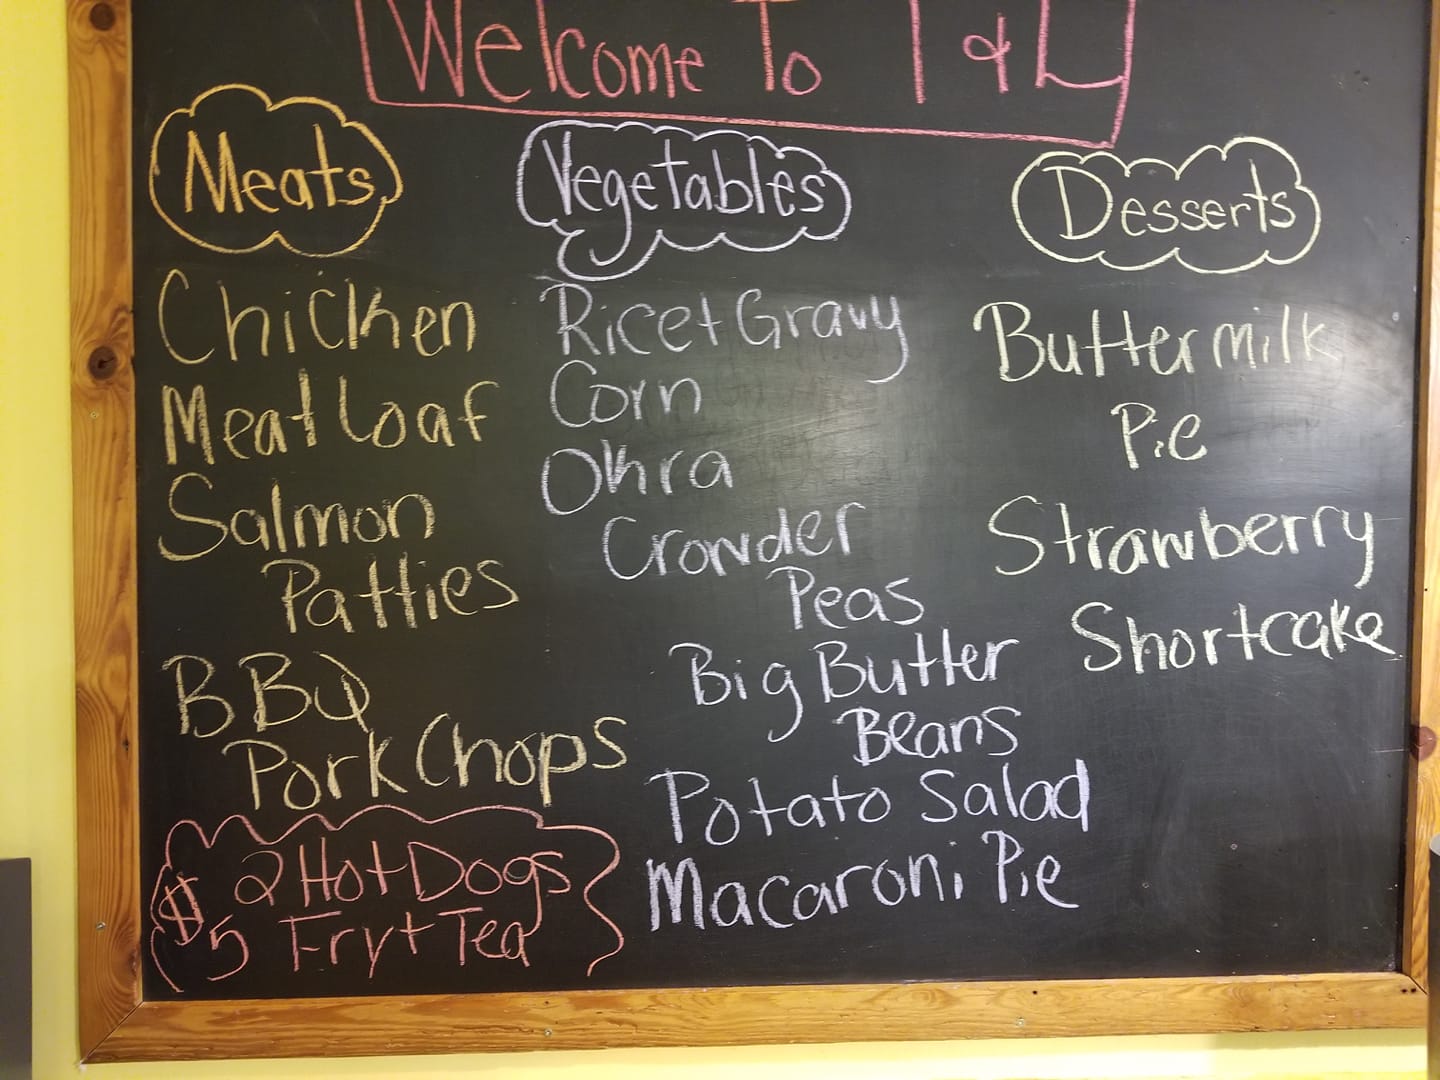 Welcome To T & L
Meats
Chicken
Meat Loaf
Salmon
Patties
BBQ
Pork Chops
$5 2 Hot Dogs
Fry + Tea
Vegetables
Rice + Gravy
Corn
Okra
Crowder
Peas
Big Butter
Beans
Potato Salad
Macaroni Pie
Desserts
Buttermilk
Pie
Strawberry
Shortcake